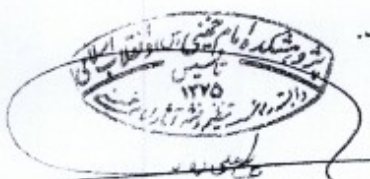 پژوهشکده امام خمینی (س) و انقلاب اسلامی
تاسیس
۱۳۷۵
وابسته به موسسه تنظیم و نشر آثار امام خمینی